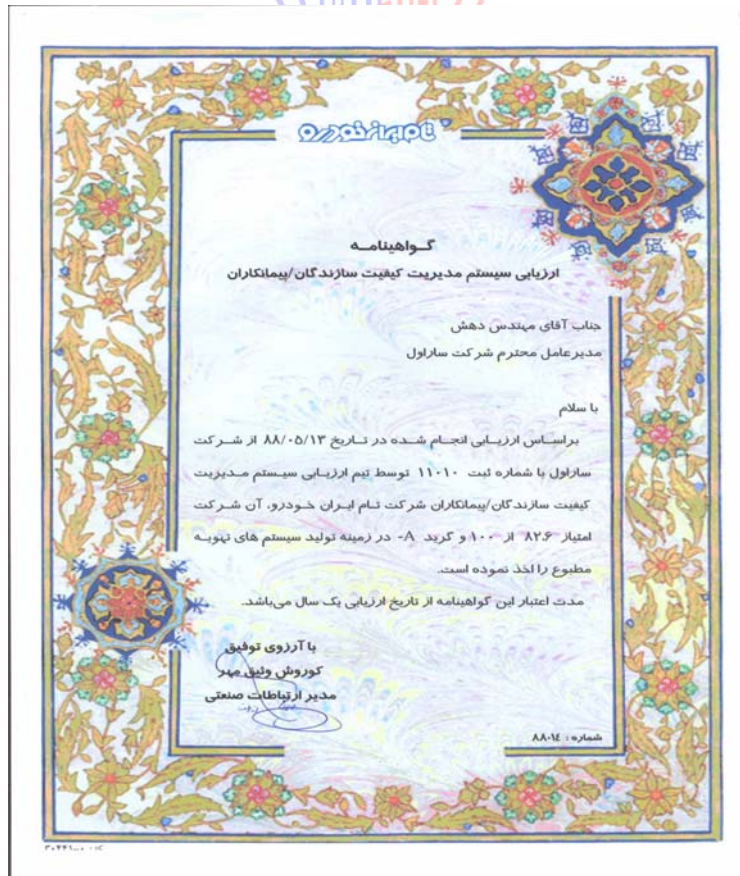 تام ایران خودرو
گـواهینامـه
ارزیابی سیستم مدیریت کیفیت سازندگان/پیمانکاران
جناب آقای مهندس دهش
مدیرعامل محترم شرکت ساراول
با سلام
براساس ارزیابی انجام شده در تاریخ ۸۸/۰۵/۱۳ از شرکت
ساراول با شماره ثبت ۱۱۰۱۰ توسط تیم ارزیابی سیستم مدیریت
کیفیت سازندگان/پیمانکاران شرکت تام ایران خودرو، آن شرکت
امتیاز ۸۲.۶ از ۱۰۰ و گرید A- در زمینه تولید سیستم های تهویه
مطبوع را اخذ نموده است.
مدت اعتبار این گواهینامه از تاریخ ارزیابی یک سال می‌باشد.
با آرزوی توفیق
کوروش وثیق مهر
مدیر ارتباطات صنعتی
شماره : ۸۸۰۱۴